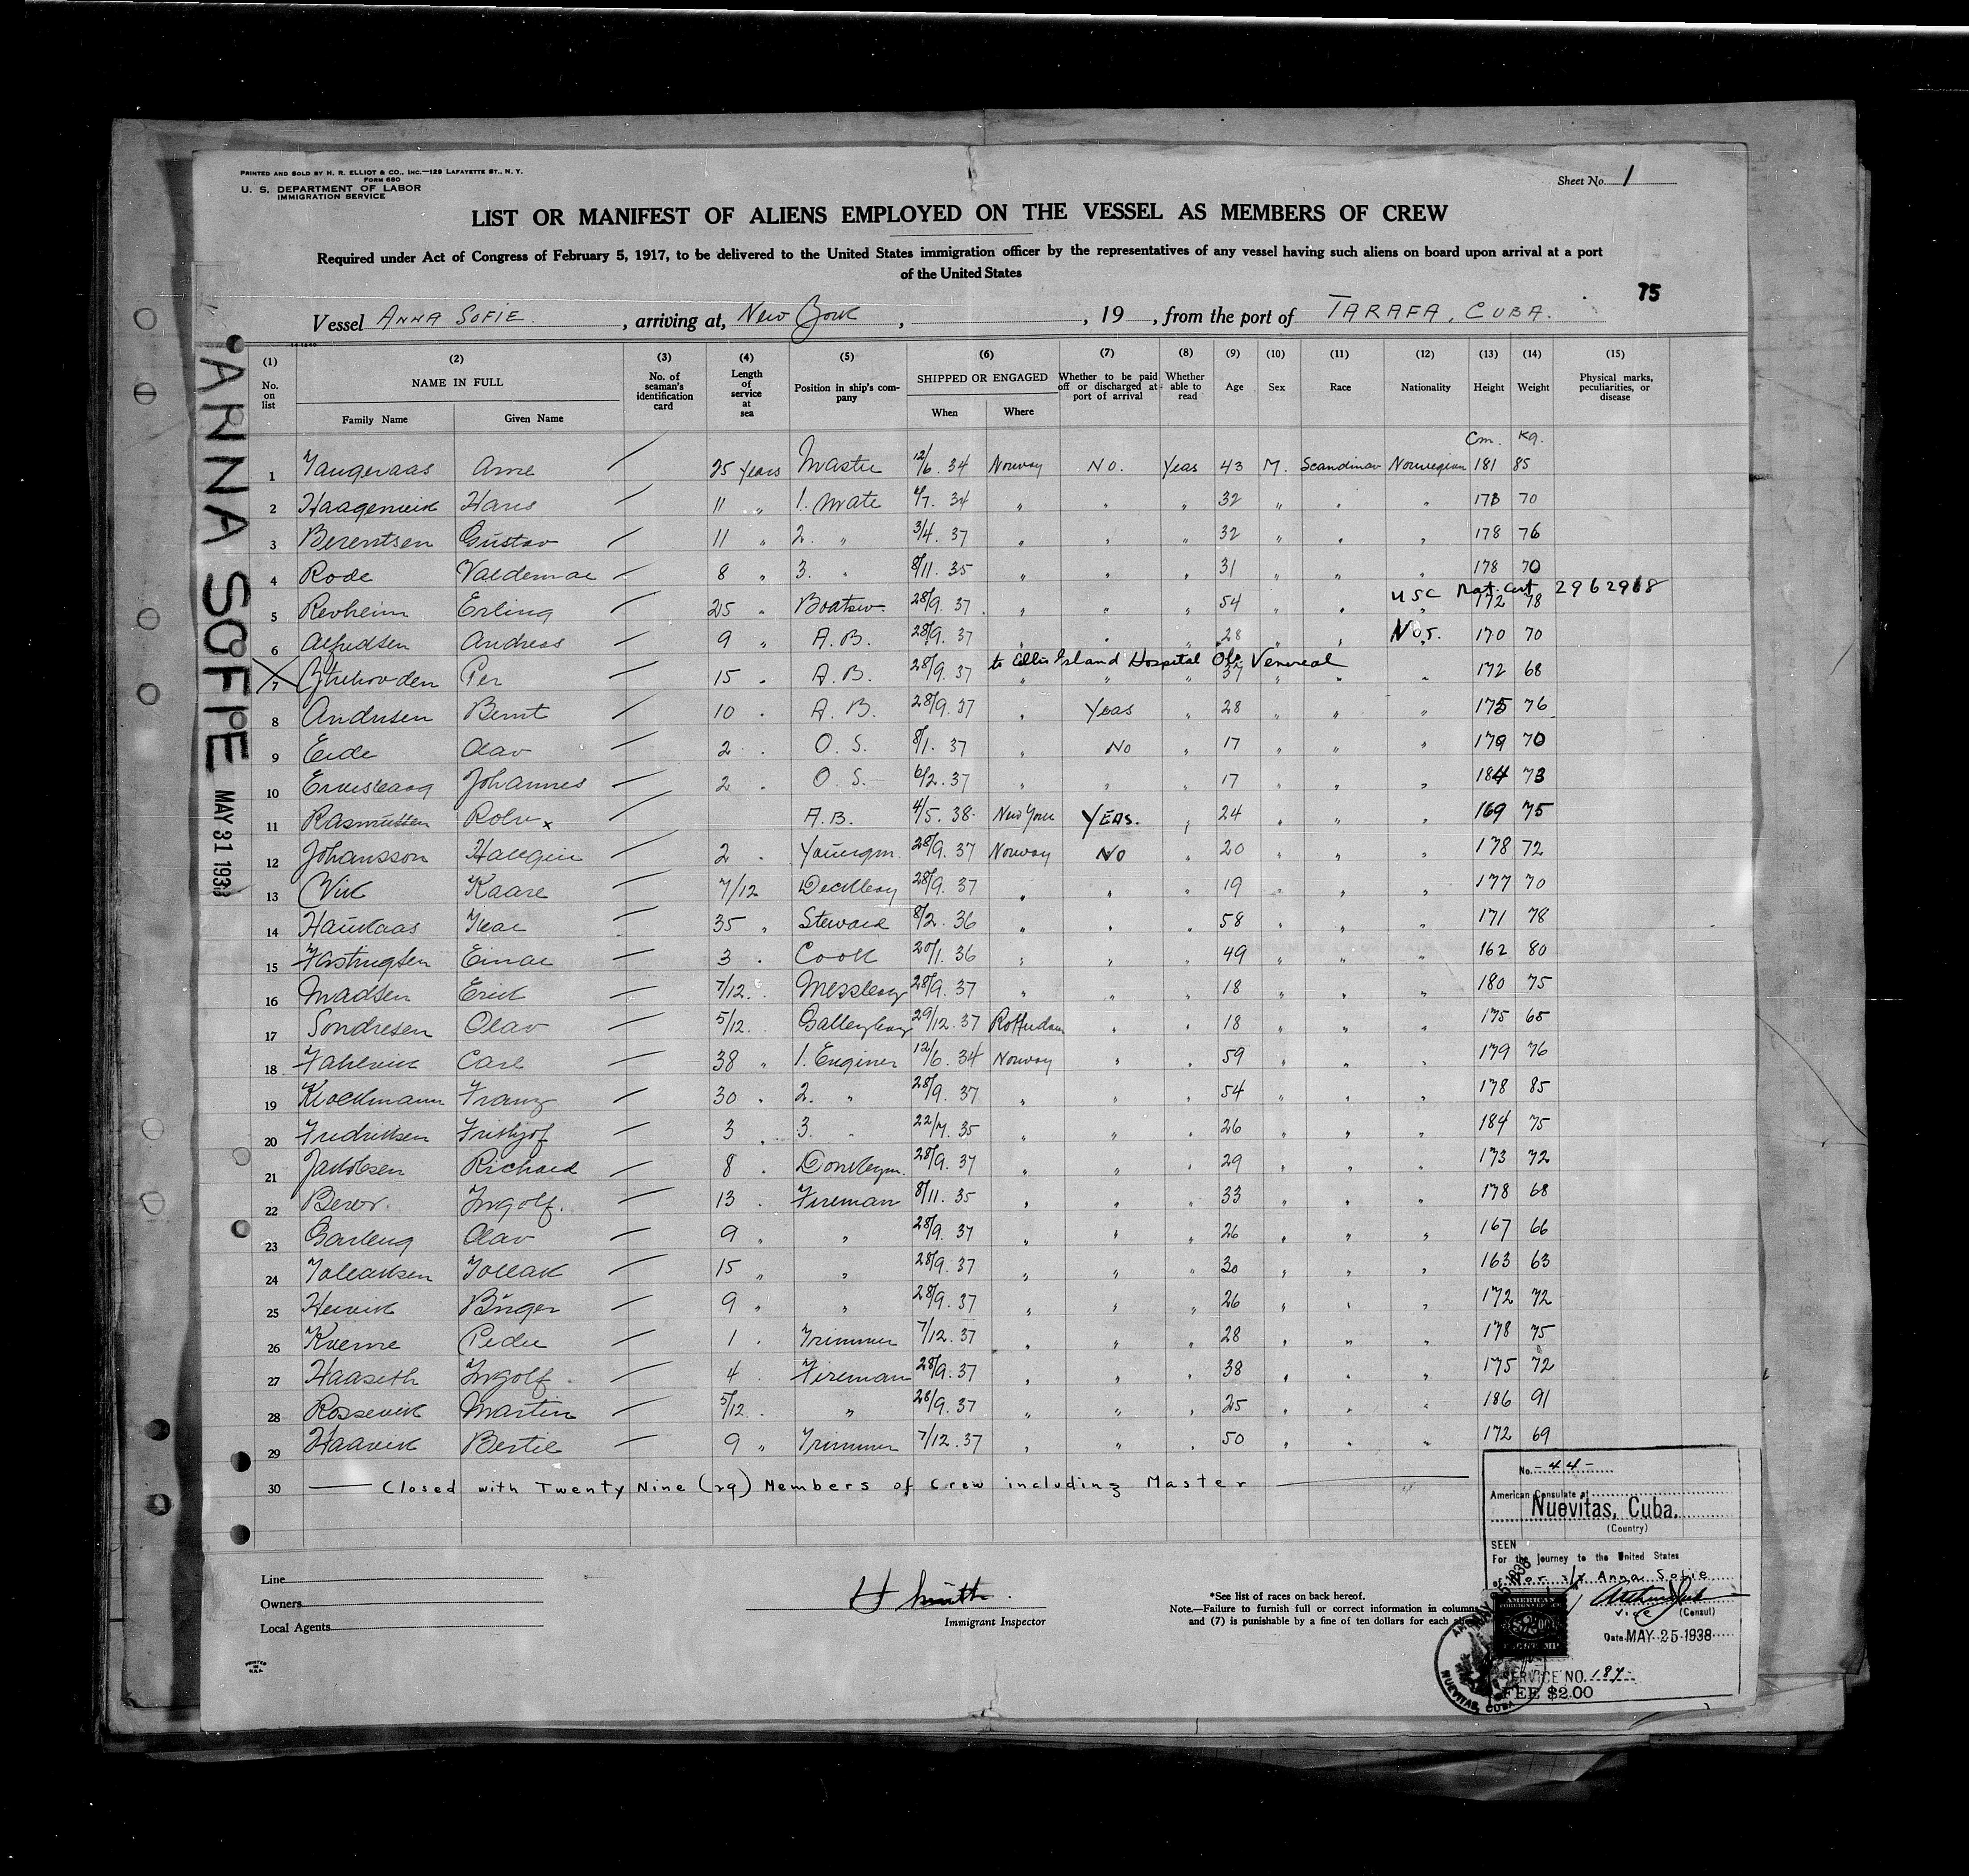 PRINTED AND SOLD BY H. R. ELLIOT & CO., INC.—129 LAFAYETTE ST., N. Y.
FORM 680
U. S. DEPARTMENT OF LABOR
IMMIGRATION SERVICE
Sheet No. 1
LIST OR MANIFEST OF ALIENS EMPLOYED ON THE VESSEL AS MEMBERS OF CREW
Required under Act of Congress of February 5, 1917, to be delivered to the United States immigration officer by the representatives of any vessel having such aliens on board upon arrival at a port
of the United States
75
Vessel ANNA SOFIE, arriving at, New York, , 19 , from the port of TARAFA, CUBA.
ANNA SOFIE MAY 31 1938
(1) (2) (3) (4) (5) (6) (7) (8) (9) (10) (11) (12) (13) (14) (15)
No. on list NAME IN FULL Family Name Given Name No. of seaman's identification card Length of service at sea Position in ship's company SHIPPED OR ENGAGED When Where Whether to be paid off or discharged at port of arrival Whether able to read Age Sex Race Nationality Height Weight Physical marks, peculiarities, or disease
Cm. Kg.
1 Arne 25 years Master 12/6. 34 Norway No. Yeas 43 M. Scandinav Norwegian 181 85
2 Hans 11 „ 1. Mate 34 „ „ „ 32 „ „ „ 173 70
3 Berentsen Gustav 11 „ 2. „ 3/4. 37 „ „ „ 32 „ „ „ 178 76
4 Rode Valdemar 8 „ 3. „ 8/11. 35 „ „ „ 31 „ „ „ 178 70
5 Revheim Erling 25 „ Boatsw. 28/9. 37 „ „ „ 54 „ „ „ USC Nat. Cert 2962918 172 78
6 Alfredsen Andreas 9 „ A. B. 28/9. 37 „ „ „ 28 „ „ Nor. 170 70
7 Per 15 „ A. B. 28/9. 37 to Ellis Island Hospital Obs. Venereal 37 „ „ „ 172 68
8 Andersen Bernt 10 „ A. B. 28/9. 37 „ Yeas „ 28 „ „ „ 175 76
9 Eide Olav 2 „ O. S. 8/1. 37 „ No „ 17 „ „ „ 179 70
10 Johannes 2 „ O. S. 6/2. 37 „ „ „ 17 „ „ „ 184 73
11 Rasmussen A.B. 4/5. 38. New York YEAS. „ 24 „ „ „ 169 75
12 Johansson 2 „ Youngm. 28/9. 37 Norway No „ 20 „ „ „ 178 72
13 Vik Kaare 7/12 Deckboy 28/9. 37 „ „ „ 19 „ „ „ 177 70
14 Haukaas Ivar 35 „ Steward 8/2. 36 „ „ „ 58 „ „ „ 171 78
15 Einar 3 „ Cook 20/1. 36 „ „ „ 49 „ „ „ 162 80
16 Madsen Erik 7/12. Messboy 28/9. 37 „ „ „ 18 „ „ „ 180 75
17 Sondresen Olav 5/12. Galleyboy 29/12. 37 Rotterdam „ „ 18 „ „ „ 175 65
18 Carl 38 „ 1. Enginer 12/6. 34 Norway „ „ 59 „ „ „ 179 76
19 Klockmann Franz 30 „ 2. „ 28/9. 37 „ „ „ 54 „ „ „ 178 85
20 Fredriksen Frithjof 3 „ 3. „ 22/7. 35 „ „ „ 26 „ „ „ 184 75
21 Jakobsen Richard 8 „ Donkeym. 28/9. 37 „ „ „ 29 „ „ „ 173 72
22 Ingolf. 13 „ Fireman 8/11. 35 „ „ „ 33 „ „ „ 178 68
23 Olav 9 „ „ 28/9. 37 „ „ „ 26 „ „ „ 167 66
24 Tollaksen Tollak 15 „ „ 28/9. 37 „ „ „ 30 „ „ „ 163 63
25 Birger 9 „ „ 28/9. 37 „ „ „ 26 „ „ „ 172 72
26 Peder 1 „ Trimmer 7/12. 37 „ „ „ 28 „ „ „ 178 75
27 Haaseth Ingolf 4 „ Fireman 28/9. 37 „ „ „ 38 „ „ „ 175 72
28 Rossevik Martin 5/12 „ 28/9. 37 „ „ „ 25 „ „ „ 186 91
29 Haavik Bertil 9 „ Trimmer 7/12. 37 „ „ „ 50 „ „ „ 172 69
30 Closed with Twenty Nine (29) Members of Crew including Master
No. -44-
American Consulate at
Nuevitas, Cuba.
(Country)
SEEN
For the journey to the United States
of Nor. s/s Anna Sofie
Vice (Consul)
Date MAY 25 1938
SERVICE NO. 187
FEE $2.00
AMERICAN
NUEVITAS, CUBA
Line
Owners
Local Agents
H Smith
Immigrant Inspector
*See list of races on back hereof.
Note.—Failure to furnish full or correct information in columns
and (7) is punishable by a fine of ten dollars for each
PRINTED IN U.S.A.